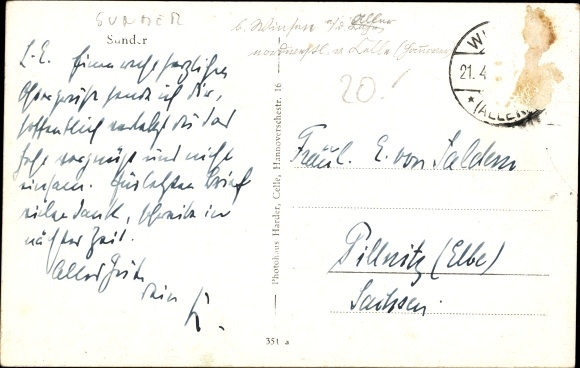 SUNDER
Sunder
b. Winsen a/d Aller
nordwestl. v. Celle (Hannover)
20.-
L. E. Einen recht herzlichen
Ostergruß sende ich Dir,
hoffentlich verlebst Du das
Fest vergnügt und nicht
einsam. Für letzten Brief
vielen Dank, schreibe in
nächster Zeit.
Alles Gute
Dein
Photohaus Harder, Celle, Hannoverschestr. 16
WI
21.4
* (ALLER)
Fräul. E. von Saldern
Pillnitz (Elbe)
Sachsen.
351 a